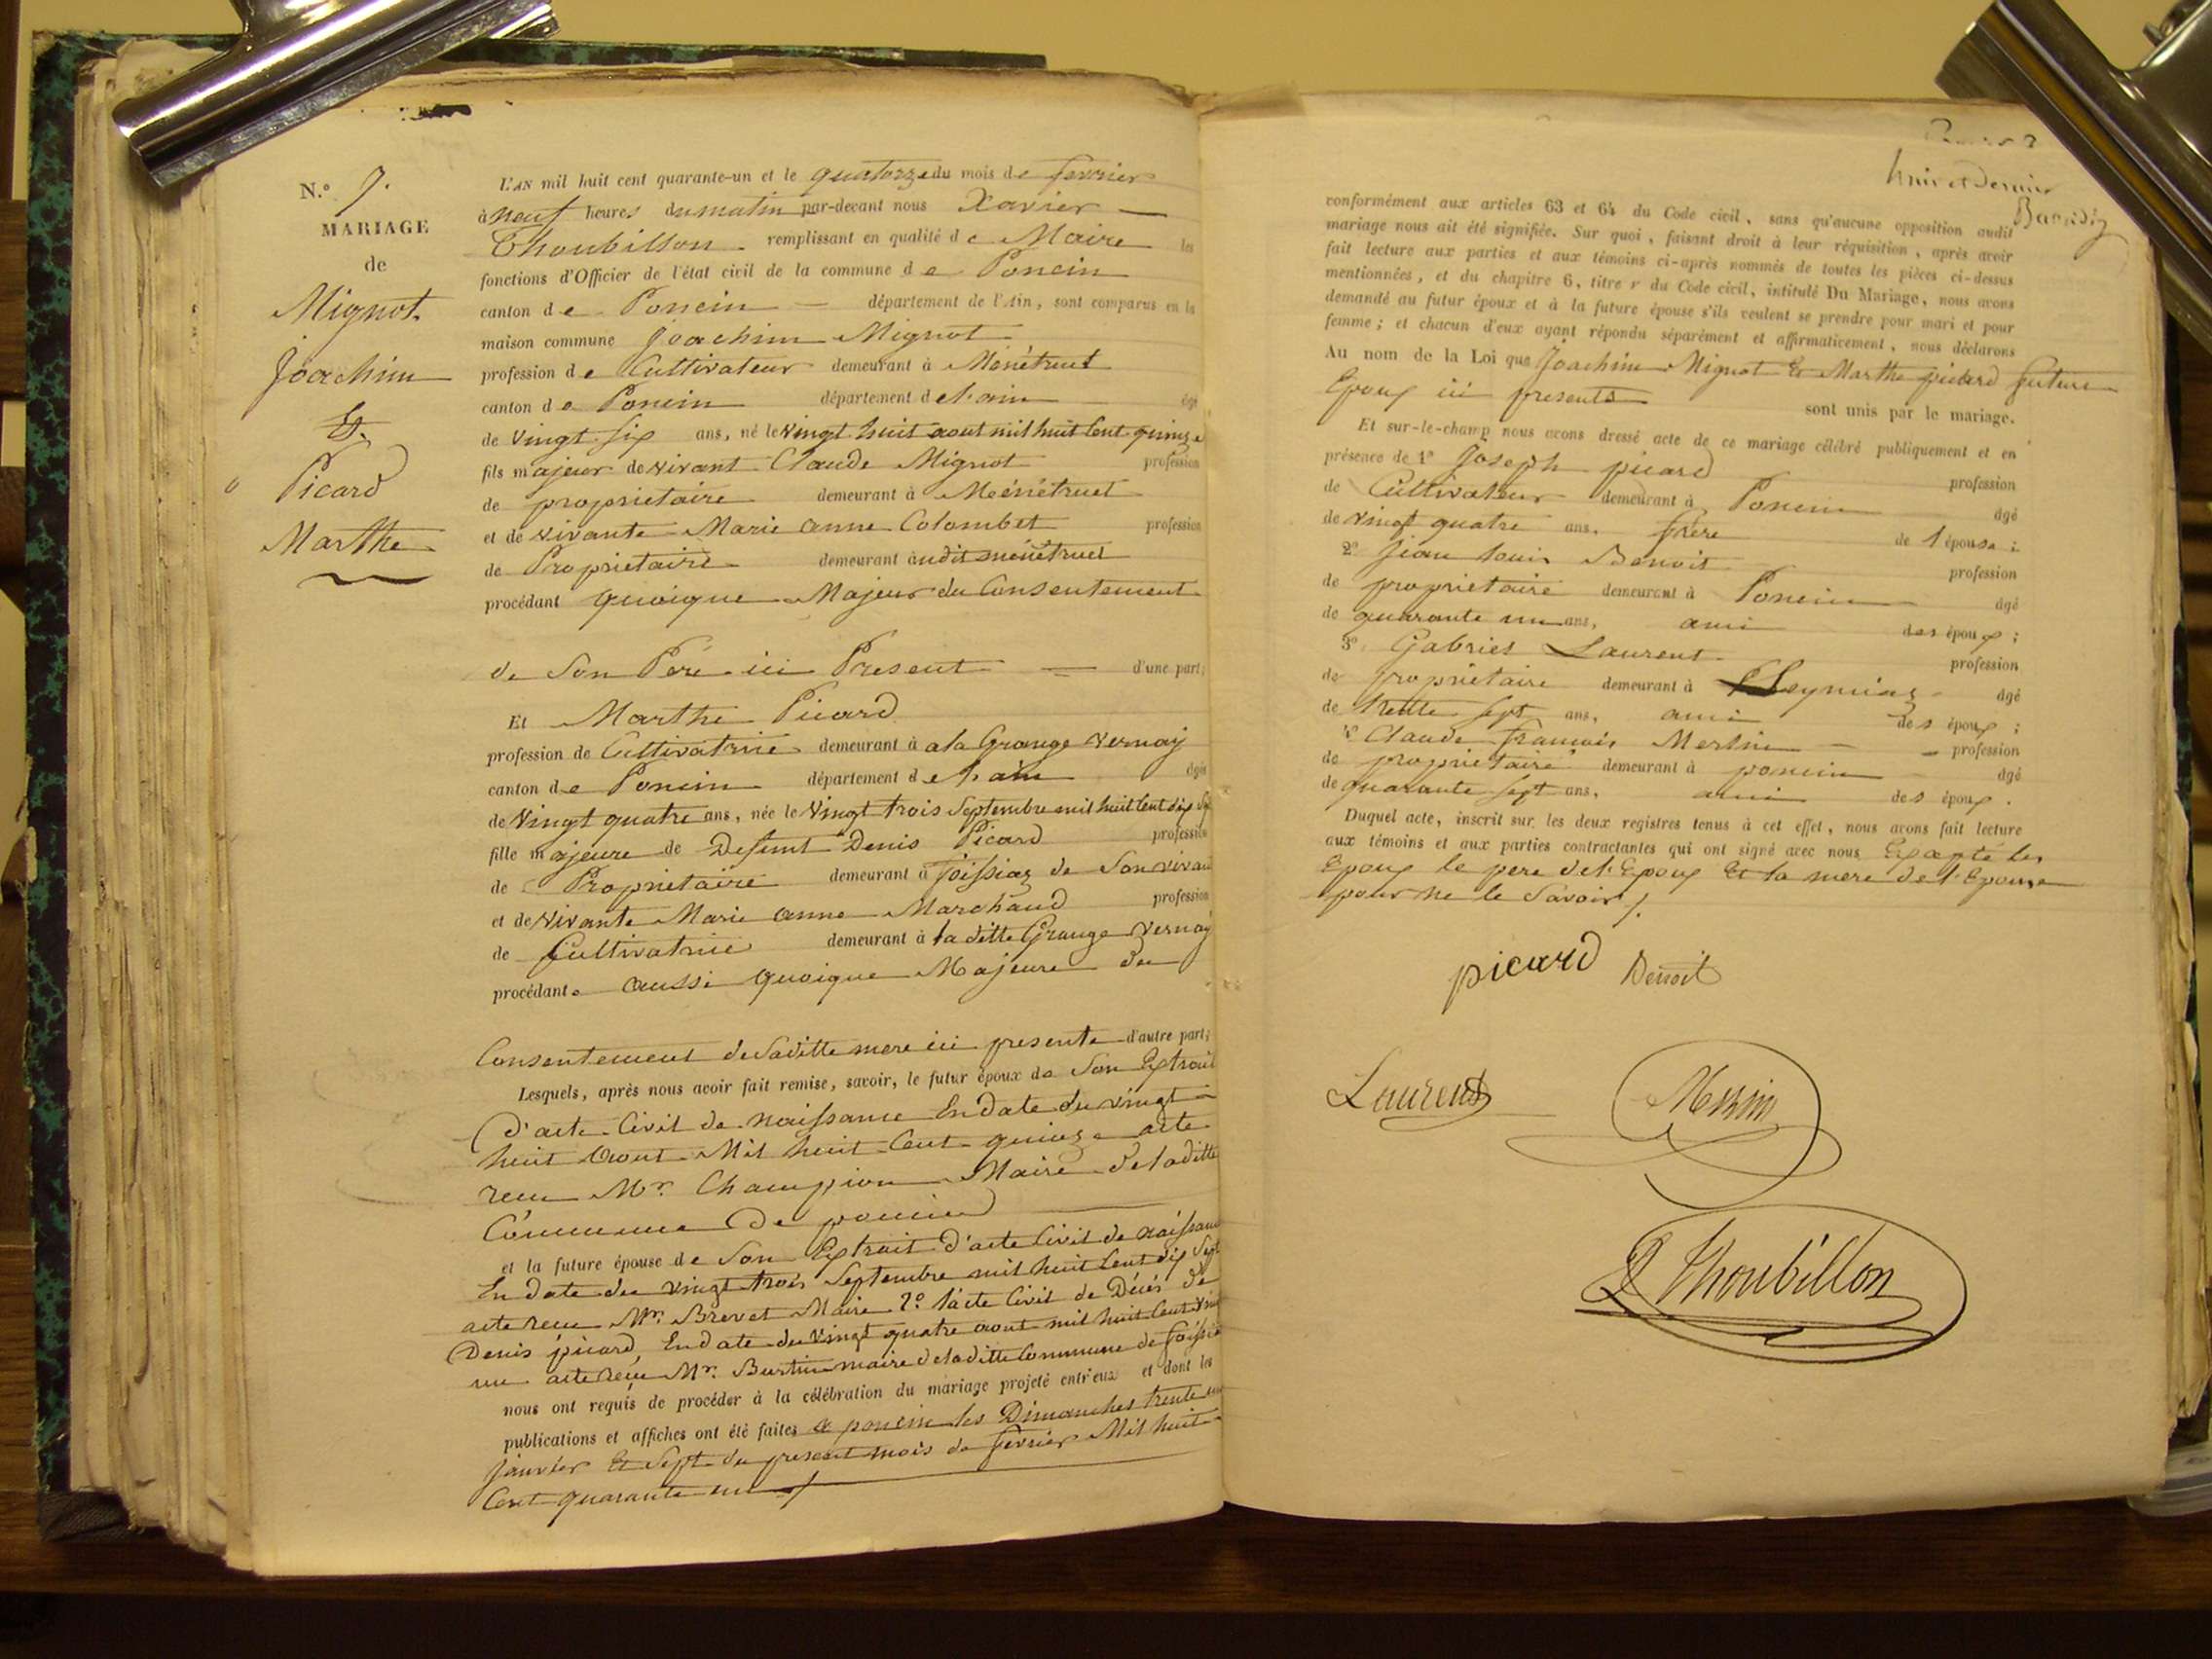 N.º 7.
MARIAGE
de
Mignot
Joachim
Et
Picard
Marthe
L'AN mil huit cent quarante-un et le quatorze du mois de fevrier
à neuf heures du matin par-devant nous Xavier
Thoubillon remplissant en qualité de Maire les
fonctions d'Officier de l'état civil de la commune de Poncin
canton de Poncin département de l'Ain, sont comparus en la
maison commune Joachim Mignot
profession de Cultivateur demeurant à Ménétruel
canton de Poncin département de l'ain âgé
de Vingt six ans, né le vingt huit aout mil huit Cent quinze
fils majeur de vivant Claude Mignot profession
de proprietaire demeurant à Ménétruel
et de vivante Marie anne Colombet profession
de Proprietaire demeurant audit ménétruel
procédant quoique Majeur du Consentement
de Son Pere ici Present d'une part;
Et Marthe Picard
profession de Cultivatrice demeurant à a la Grange Vernay
canton de Poncin département de l'ain âgée
de Vingt quatre ans, née le Vingt trois Septembre mil huit Cent dix Sept
fille majeure de Defunt Denis Picard profession
de Proprietaire demeurant à Joissiaz de Son vivant
et de vivante Marie anne Marchand profession
de Cultivatrice demeurant à la ditte Grange Vernay
procédante aussi quoique Majeure du
Consentement de Saditte mere ici presente d'autre part;
Lesquels, après nous avoir fait remise, savoir, le futur époux de Son Extrait
d'acte Civil de naissance En date du vingt
huit aout Mil huit Cent quinze acte
recu Mr. Champion Maire de laditte
Commune de poncin
et la future épouse de Son Extrait d'acte Civil de naissance
En date du vingt trois Septembre mil huit Cent dix Sept
acte recu Mr. Brevet Maire 2º l'acte Civil de Décés de
Denis picard, En date du Vingt quatre aout mil huit Cent Vingt
un acte recu Mr. Burtin maire de laditte Commune de Joissiaz
nous ont requis de procéder à la célébration du mariage projeté entr'eux et dont les
publications et affiches ont été faites a poncin les Dimanches trente un
janvier Et Sept du present mois de fevrier Mil huit
Cent quarante un
huit et dernier
conformément aux articles 63 et 64 du Code civil, sans qu'aucune opposition audit
mariage nous ait été signifiée. Sur quoi, faisant droit à leur réquisition, après avoir
fait lecture aux parties et aux témoins ci-après nommés de toutes les pièces ci-dessus
mentionnées, et du chapitre 6, titre v du Code civil, intitulé Du Mariage, nous avons
demandé au futur époux et à la future épouse s'ils veulent se prendre pour mari et pour
femme; et chacun d'eux ayant répondu séparément et affirmativement, nous déclarons
Au nom de la Loi que Joachim Mignot Et Marthe picard future
Epoux ici presents sont unis par le mariage.
Et sur-le-champ nous avons dressé acte de ce mariage célébré publiquement et en
présence de 1º Joseph picard profession
de Cultivateur demeurant à Poncin âgé
de vingt quatre ans, frère de l'épouse;
2º Jean louis Benoit profession
de proprietaire demeurant à Poncin âgé
de quarante un ans, ami des époux;
3º Gabriel Laurent profession
de proprietaire demeurant à Leymiaz âgé
de trente sept ans, ami des époux;
4º Claude françois Merlin profession
de proprietaire demeurant à poncin âgé
de quarante sept ans, ami des époux.
Duquel acte, inscrit sur les deux registres tenus à cet effet, nous avons fait lecture
aux témoins et aux parties contractantes qui ont signé avec nous Exapté les
Epoux le pere de l'Epoux Et la mere de l'Epouse
pour ne le Savoir
picard Benoit
Laurent Merlin
Thoubillon